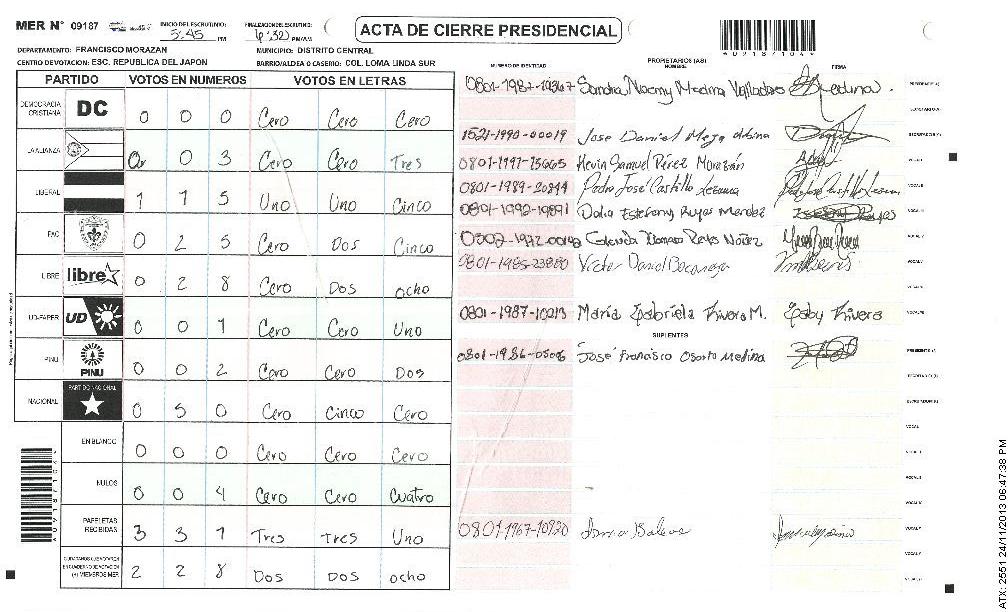 MER N° 09187
INICIO DEL ESCRUTINIO: 5:45 PM
FINALIZACION DEL ESCRUTINIO: 6:32 PM/AM
ACTA DE CIERRE PRESIDENCIAL
DEPARTAMENTO: FRANCISCO MORAZAN
MUNICIPIO: DISTRITO CENTRAL
CENTRO DE VOTACION: ESC. REPUBLICA DEL JAPON
BARRIO/ALDEA O CASERIO: COL. LOMA LINDA SUR
PARTIDO VOTOS EN NUMEROS VOTOS EN LETRAS
DEMOCRACIA CRISTIANA DC 0 0 0 Cero Cero Cero
LA ALIANZA 0 0 3 Cero Cero Tres
LIBERAL 1 1 5 Uno Uno Cinco
PAC 0 2 5 Cero Dos Cinco
LIBRE libre 0 2 8 Cero Dos ocho
UD-FAPER UD 0 0 1 Cero Cero Uno
PINU PINU 0 0 2 Cero Cero Dos
NACIONAL PARTIDO NACIONAL 0 5 0 Cero Cinco Cero
EN BLANCO 0 0 0 Cero Cero Cero
NULOS 0 0 4 Cero Cero Cuatro
PAPELETAS RECIBIDAS 3 3 1 Tres Tres Uno
2 2 8 Dos Dos ocho
NUMERO DE IDENTIDAD PROPIETARIOS (AS) NOMBRE FIRMA
Sandra Noemy Medina
PRESIDENTE (A)
SECRETARIO (A)
1521-1990-00019 Jose Daniel Mejia
ESCRUTADOR (A)
Kevin Samuel Pérez Morazán
VOCAL I
0801-1989-20844 Pedro José Castillo Lezama
VOCAL II
0801-1992-19891 Dalia Estefany Reyes Mendez
VOCAL III
Xiomara Reyes Núñez
VOCAL IV
0801-1985-23880 Victor Daniel Bocanegra
0801-1987-10213 María Gabriela Rivera M. Gaby Rivera
SUPLENTES
0801-1986-05006 José Francisco Osorto Medina
PRESIDENTE (A)
SECRETARIO (A)
ESCRUTADOR (A)
VOCAL I
0801-1967-10920
09187104
ATX: 2551 24/11/2013 06:47:38 PM